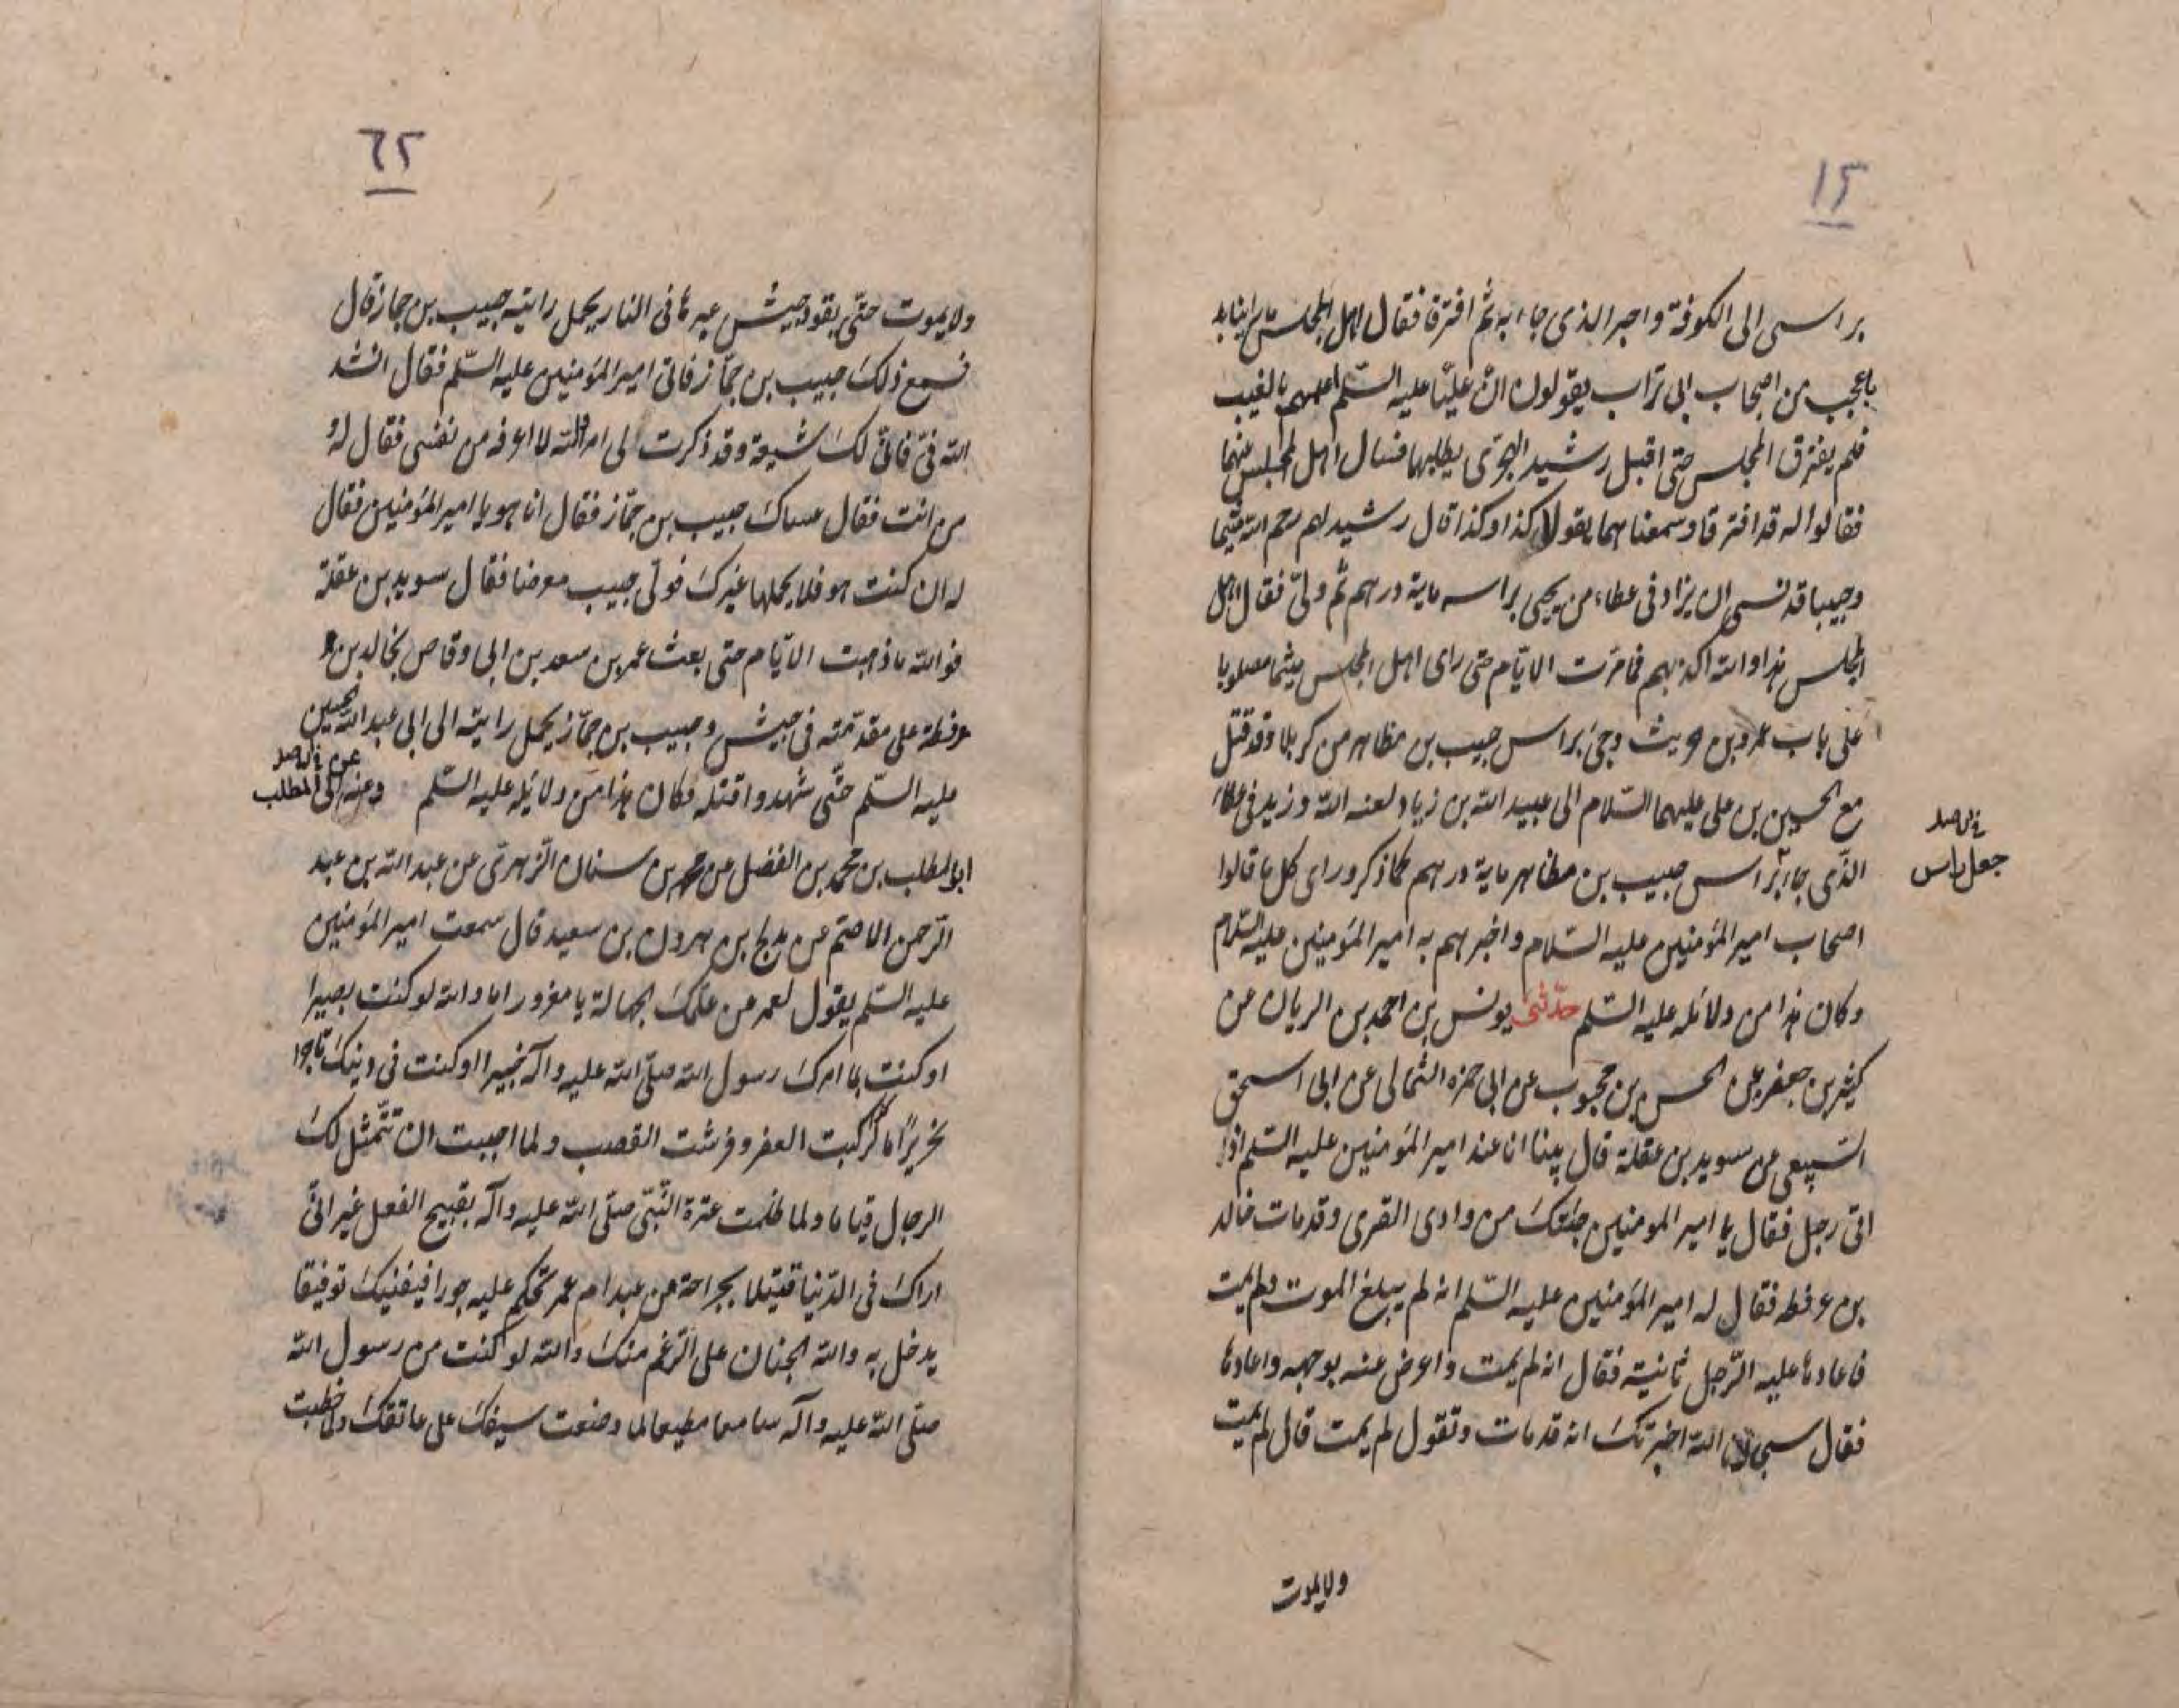 ١٢
براسى الى الكوفة واجيز الذى جاء به ثم افترقا فقال اهل المجلس ما راينا
باعجب من اصحاب ابى تراب يقولون ان عليّا عليه السّلم اعلمهم بالغيب
فلم يفترق المجلس حتى اقبل رشيد الهجرى يطلبهما فسال اهل المجلس عنهما
فقالوا له قد افترقا وسمعناهما يقولان كذا وكذا قال رشيد لهم رحم الله ميثما
وحبيبا قد نسى ان يزاد فى عطاء من يجىء براسه ماية درهم ثم ولىّ فقال اهل
المجلس هذا والله اكذبهم فما مرّت الايّام حتى راى اهل المجلس ميثما مصلوبا
على باب عمرو بن حريث وجئ براس حبيب بن مظاهر من كربلا وقد قتل
مع الحسين بن على عليهما السّلام الى عبيد الله بن زياد لعنه الله وزيد فى عطاء
الذّى جاء براس حبيب بن مظاهر ماية درهم كما ذكر وراى كل ما قالوا
اصحاب امير المؤمنين عليه السّلام واخبرهم به امير المؤمنين عليه السّلام
وكان هذا من دلائله عليه السّلم حدّثنى يونس بن احمد بن الريان عن
كثير بن جعفر عن الحسن بن محبوب عن ابى حمزه الثمالى عن ابى اسحق
السّبيعى عن سويد بن عقلة قال بينا انا عند امير المؤمنين عليه السّلم اذا
اتى رجل فقال يا امير المومنين جئتك من وادى القرى وقد مات خالد
بن عرفطه فقال له امير المؤمنين عليه السّلم انه لم يبلغ الموت ولم يمت
فاعادها عليه الرّجل ثانية فقال انه لم يمت واعرض عنه بوجهه واعادها
فقال سبحان الله اخبرتك انه قد مات وتقول لم يمت قال لم يمت
ولايموت
جعل براس
٦٢
ولايموت حتّى يقود جيش عيرها فى النار يحمل رايته حبيب بن جماز قال
فسمع ذلك حبيب بن جمّاز فاتى امير المؤمنين عليه السّلم فقال انشد
الله فىّ فانى لك شيعة وقد ذكرت لى امر والله لا اعرفه من نفسى فقال له
من انت فقال حبيب بن جمّاز فقال انا هو يا امير المؤمنين فقال
له ان كنت هو فلا يحملها غيرك فولّى حبيب معرضا فقال سويد بن عقلة
فو الله ما ذهبت الايّام حتى بعث عمر بن سعد بن ابى وقاص بخالد بن
عرفطة على مقدّمته فى جيش وحبيب بن جمّاز يحمل رايته الى ابى عبد الله الحسين
عليه السّلم حتّى شهدوا قتله فكان هذا من دلائله عليه السّلم وعنه عن ابى المطلب
ابوالمطلب بن محمد بن الفضل عن محمد بن سنان الزّهرى عن عبد الله بن عبد
الرّحمن الاصمّ عن مدلج بن هرون بن سعيد قال سمعت امير المؤمنين
عليه السّلم يقول لعمر من علّمك الجهالة يا مغرور اما والله لو كنت بصيرا
او كنت بما امرك رسول الله صلّى الله عليه وآله خبيرا او كنت فى دينك تاجرا
نحريرًا اما كركبت العفر وفرشت القصب ولما احببت ان تتّمثل لك
الرجال قياما ولما ظلمت عترة النّبىّ صلّى الله عليه وآله بقبيح الفعل غير انّى
اراك فى الدّنيا قتيلا بجراحة من عبد ام عمر تحكم عليه جورا فيفنيك توفيقا
يدخل به والله الجنان على الرّغم منك والله لو كنت من رسول الله
صلّى اللّه عليه وآله سامعا مطيعا لما وضعت سيفك على عاتقك ولما خطبت